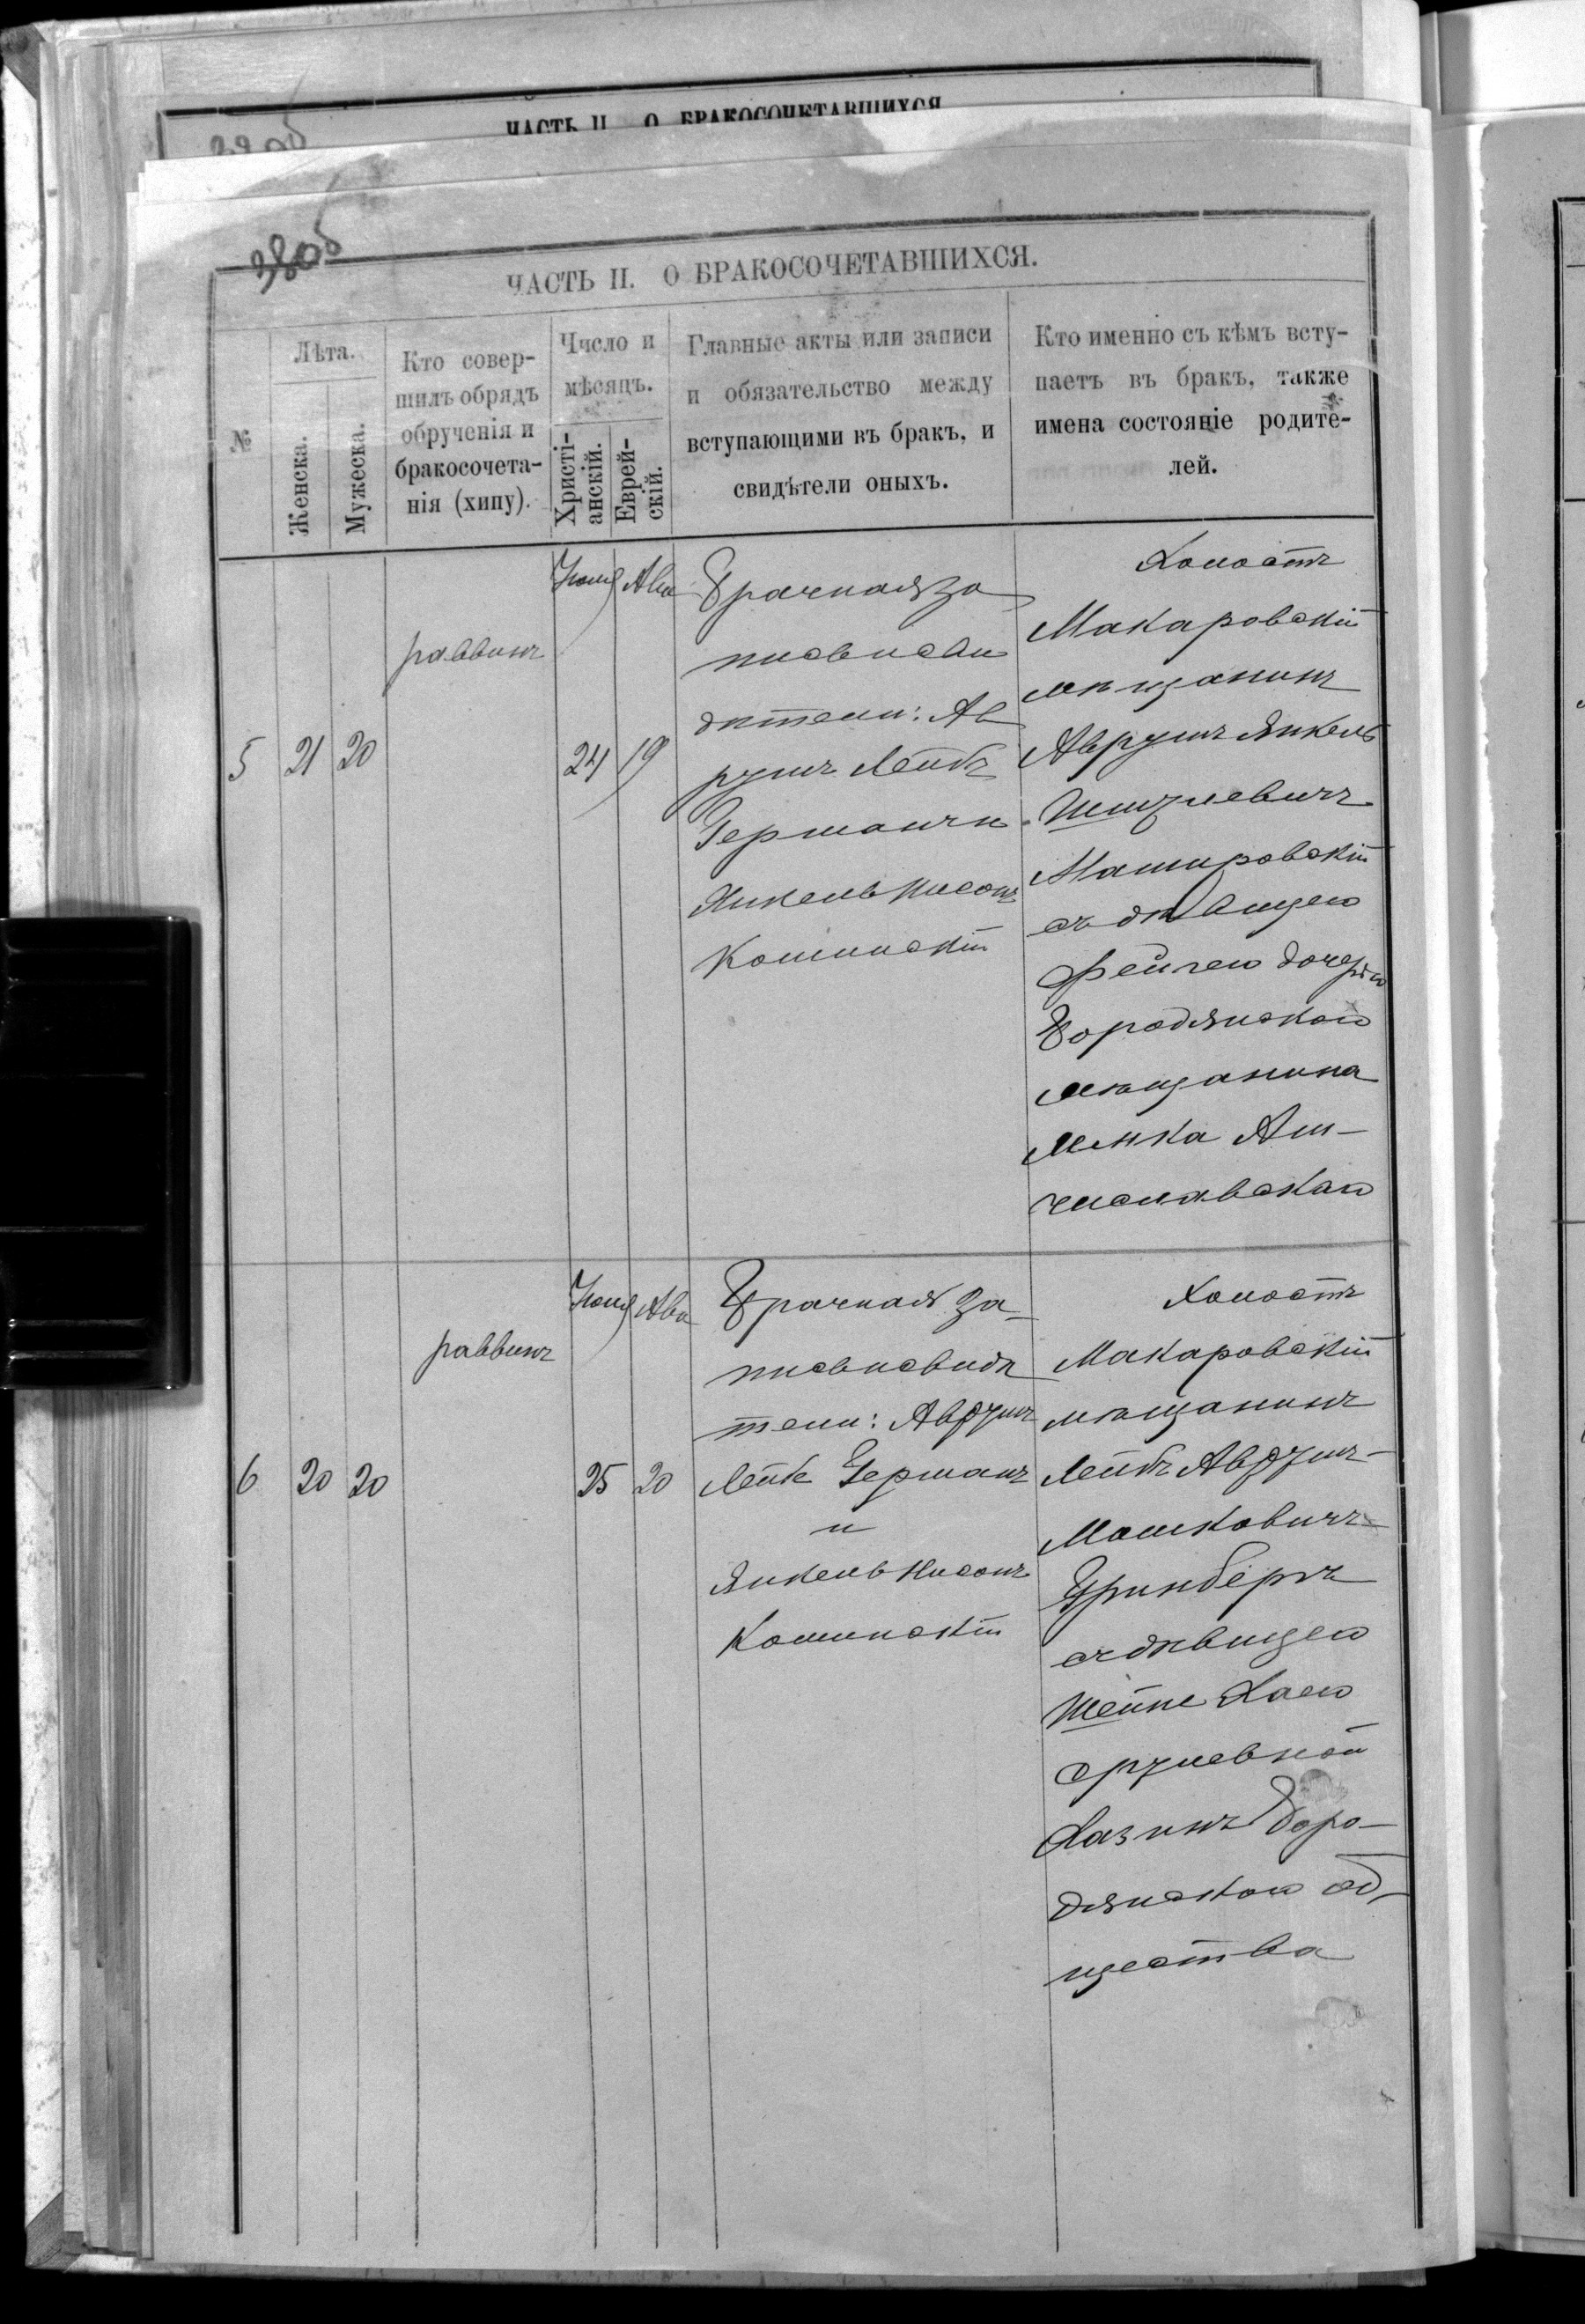 ЧАСТЬ II. О БРАКОСОЧЕТАВШИХСЯ
38об
ЧАСТЬ II. О БРАКОСОЧЕТАВШИХСЯ.
№
Лѣта.
Женска.
Мужеска.
Кто совер-
шилъ обрядъ
обрученія и
бракосочета-
нія (хипу).
Число и
мѣсяцъ.
Христі-
анскій.
Еврей-
скій.
Главные акты или записи
и обязательство между
вступающими въ бракъ, и
свидѣтели оныхъ.
Кто именно съ кѣмъ всту-
паетъ въ бракъ, также
имена состояніе родите-
лей.
5
21
20
раввинъ
Іюля
24
Ава
19
Брачная за
пись и сви
дѣтели: Ав
румъ Лейбъ
Германъ и
Янкель Нисонъ
Кошинскій
Холостъ
Макаровскій
мѣщанинъ
Аврумъ Янкель
Шмулевичъ
съ дѣвицею
Фейгею дочерью
Бородянскаго
мѣщанина
6
20
20
раввинъ
Іюля
25
Ава
20
Брачная за-
пись и свидѣ
тели: Аврумъ
Лейбъ Германъ
и
Янкель Нисонъ
Кошинскій
Холостъ
Макаровскій
мѣщанинъ
Лейбъ Аврумъ-
Мошковичъ
Гринбергъ
съ дѣвицею
Шейне Хаею
Срулевной
Хазинъ Боро-
дянскаго об-
щества